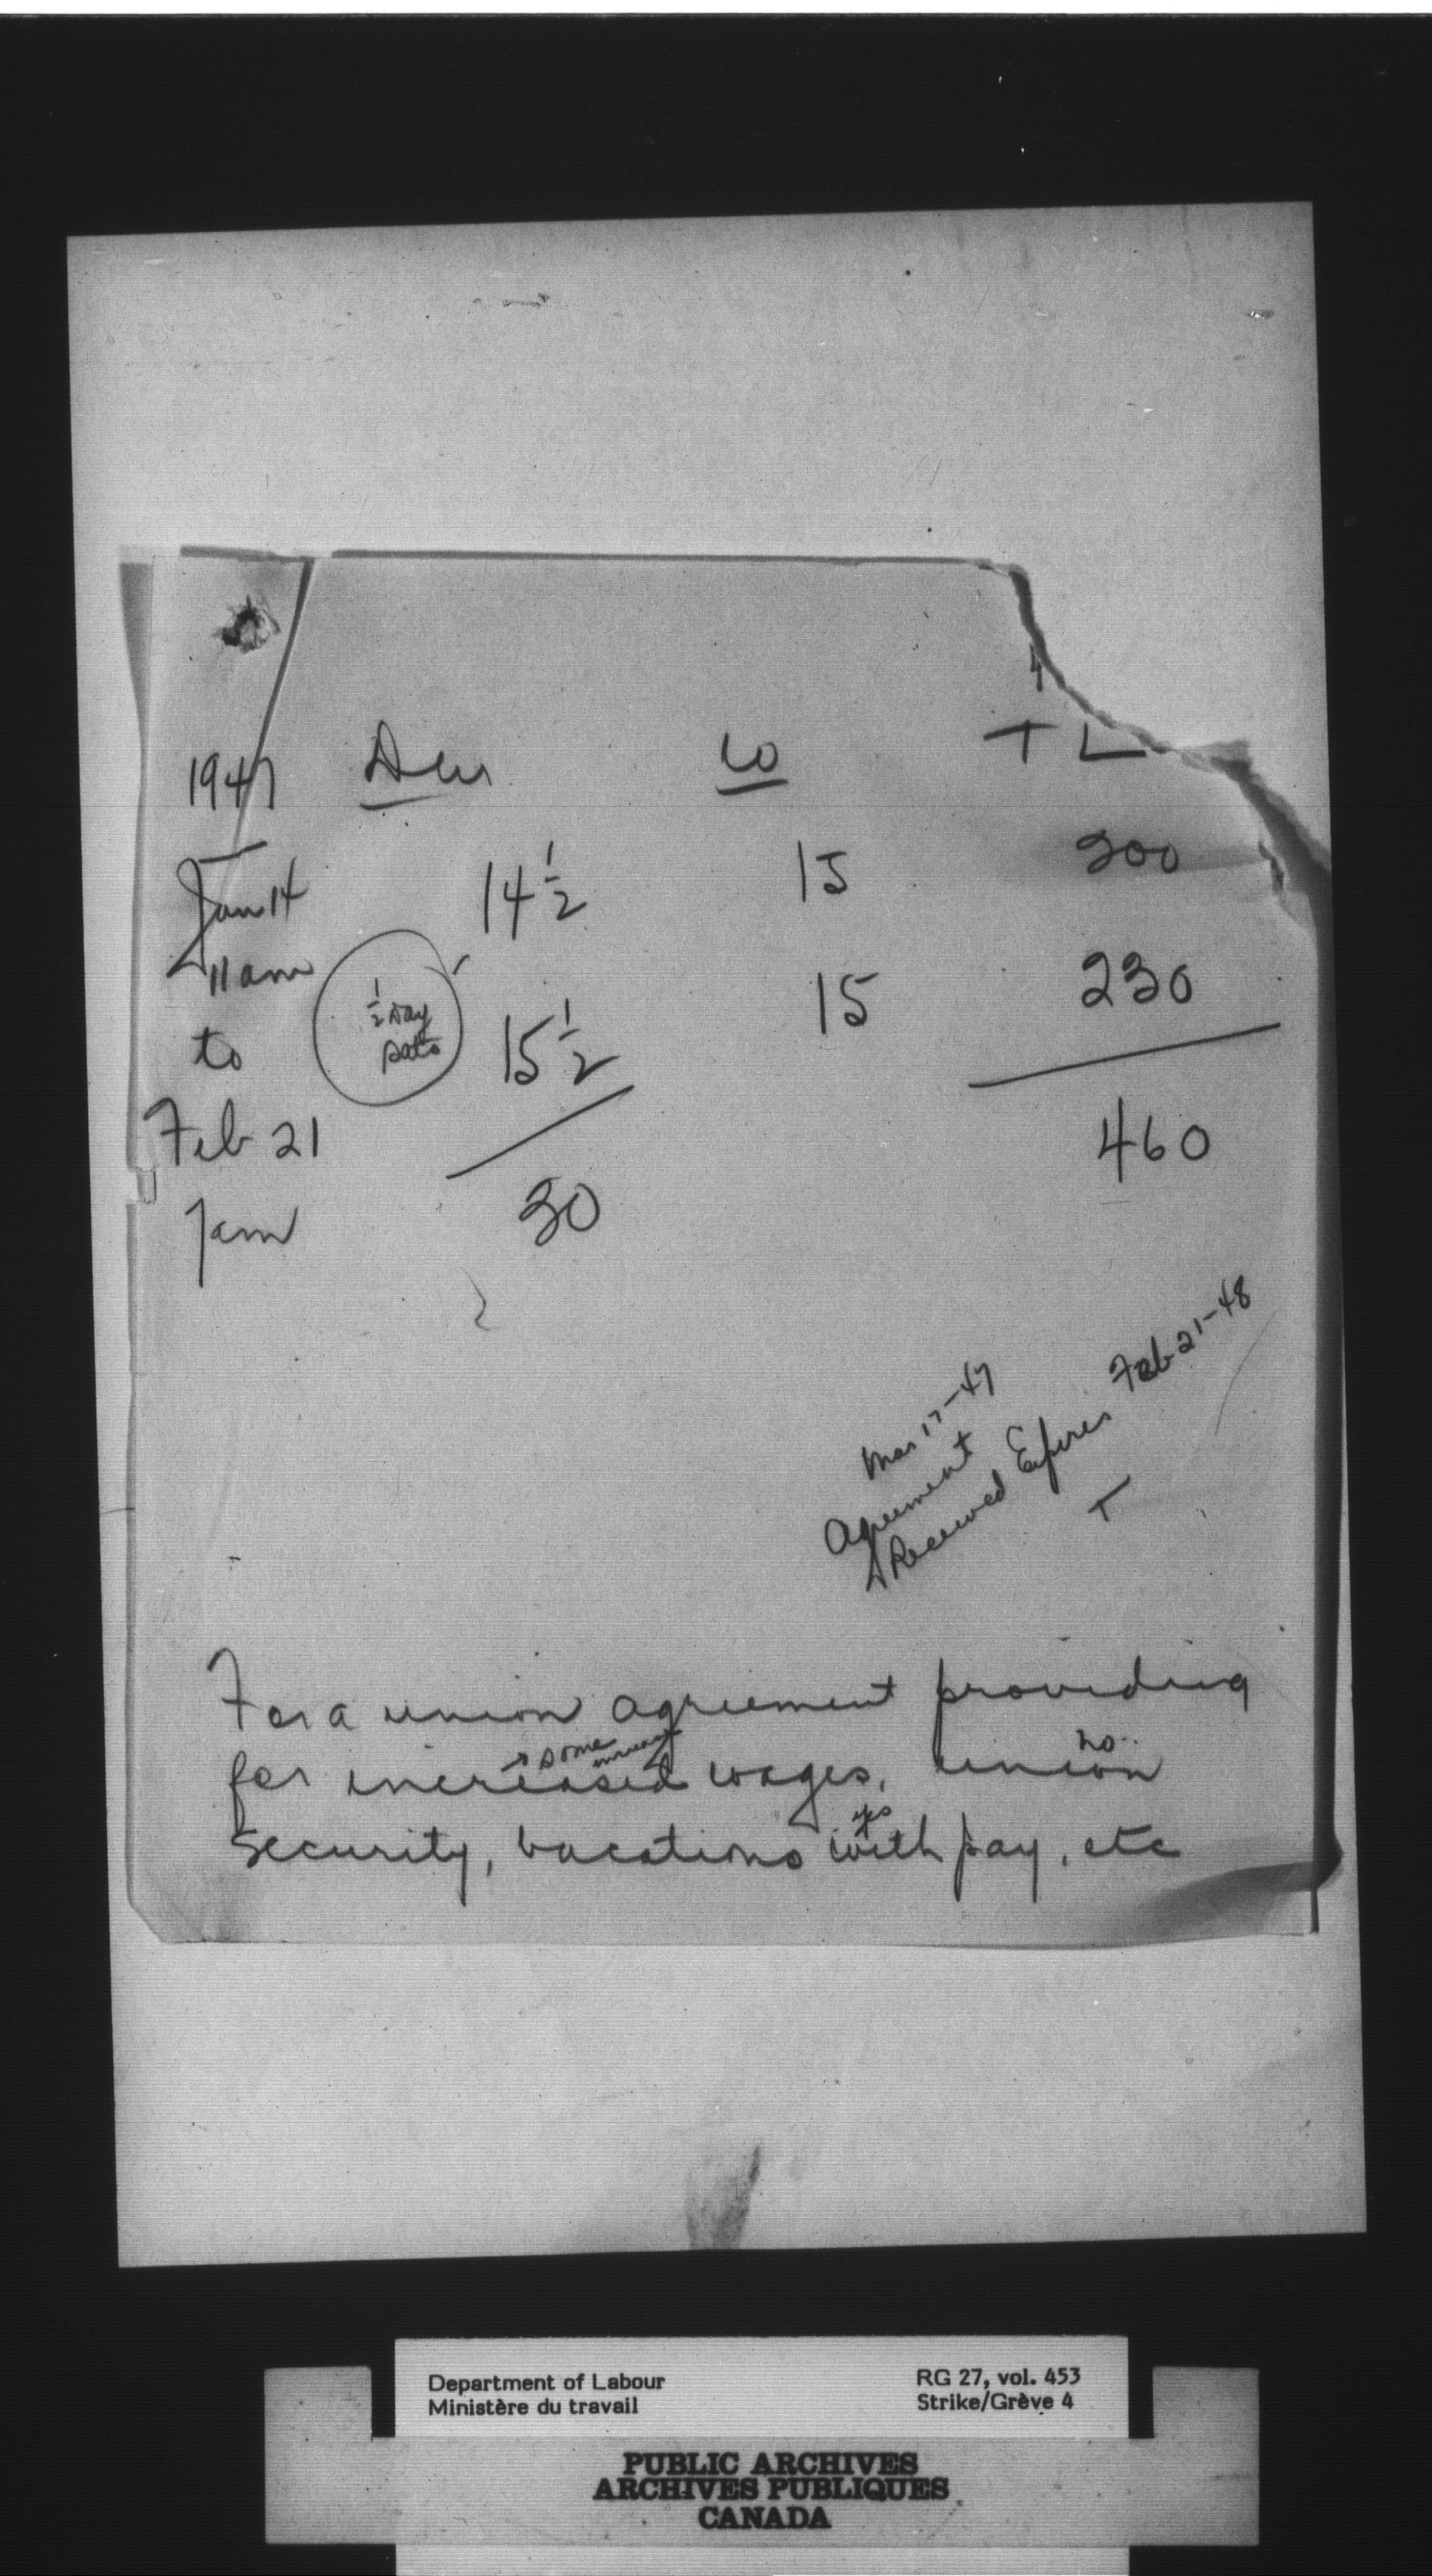 4
1947 Dur W T L
Jan 14 14 1/2 15 200
11 am
1/2 day
sats
to 15 1/2 15 230
Feb 21 30 460
7am
Mar 17-47
Agreement
Received Expires Feb 21-48
T
For a union agreement providing
→ some increase no
for increased wages, union
yes
security, vacations with pay, etc
Department of Labour
Ministère du travail
RG 27, vol. 453
Strike/Grève 4
PUBLIC ARCHIVES
ARCHIVES PUBLIQUES
CANADA